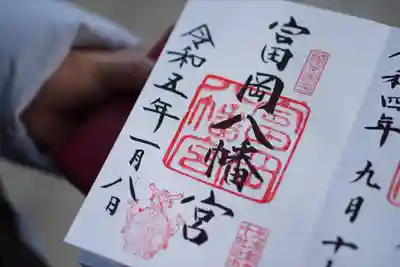 富岡八幡宮
令和五年一月八日
令和四年九月十